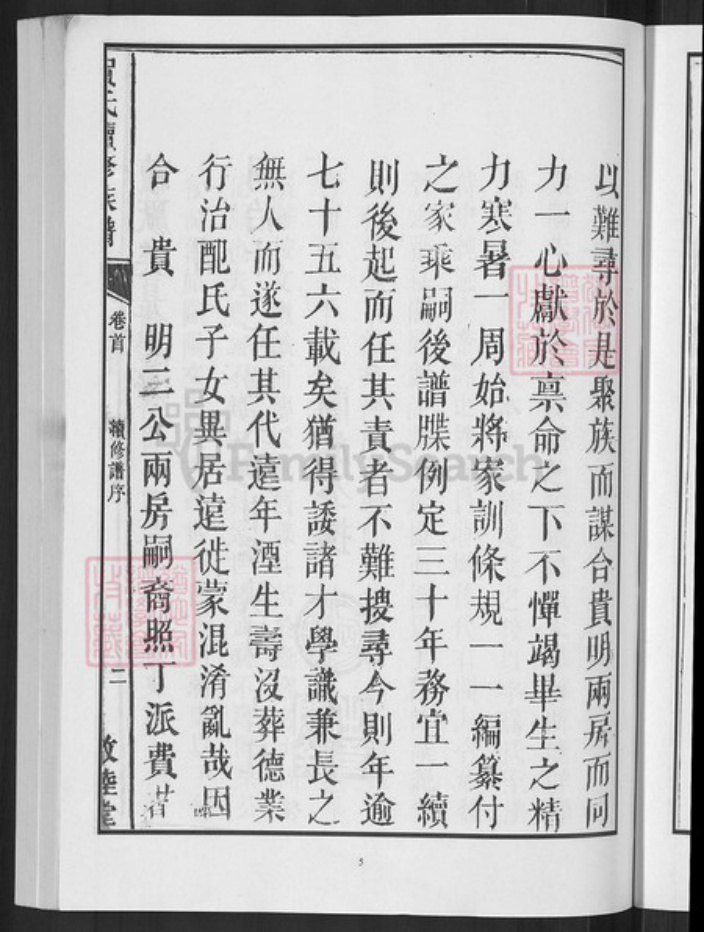 以難尋於是聚族而謀合貴明兩房而同
力一心獻於稟命之下不憚竭畢生之精
力寒暑一周始將家訓條規一一編纂付
之家乘嗣後譜牒例定三十年務宜一續
則後起而任其責者不難搜尋今則年逾
七十五六載矣猶得諉諸才學識兼長之
無人而遂任其代遠年湮生壽沒葬德業
行治配氏子女異居遠徙蒙混淆亂哉因
合 貴 明二公兩房嗣裔照丁派費
氏續修族譜
卷首
續修譜序
二
敦睦堂
5
FamilySearch